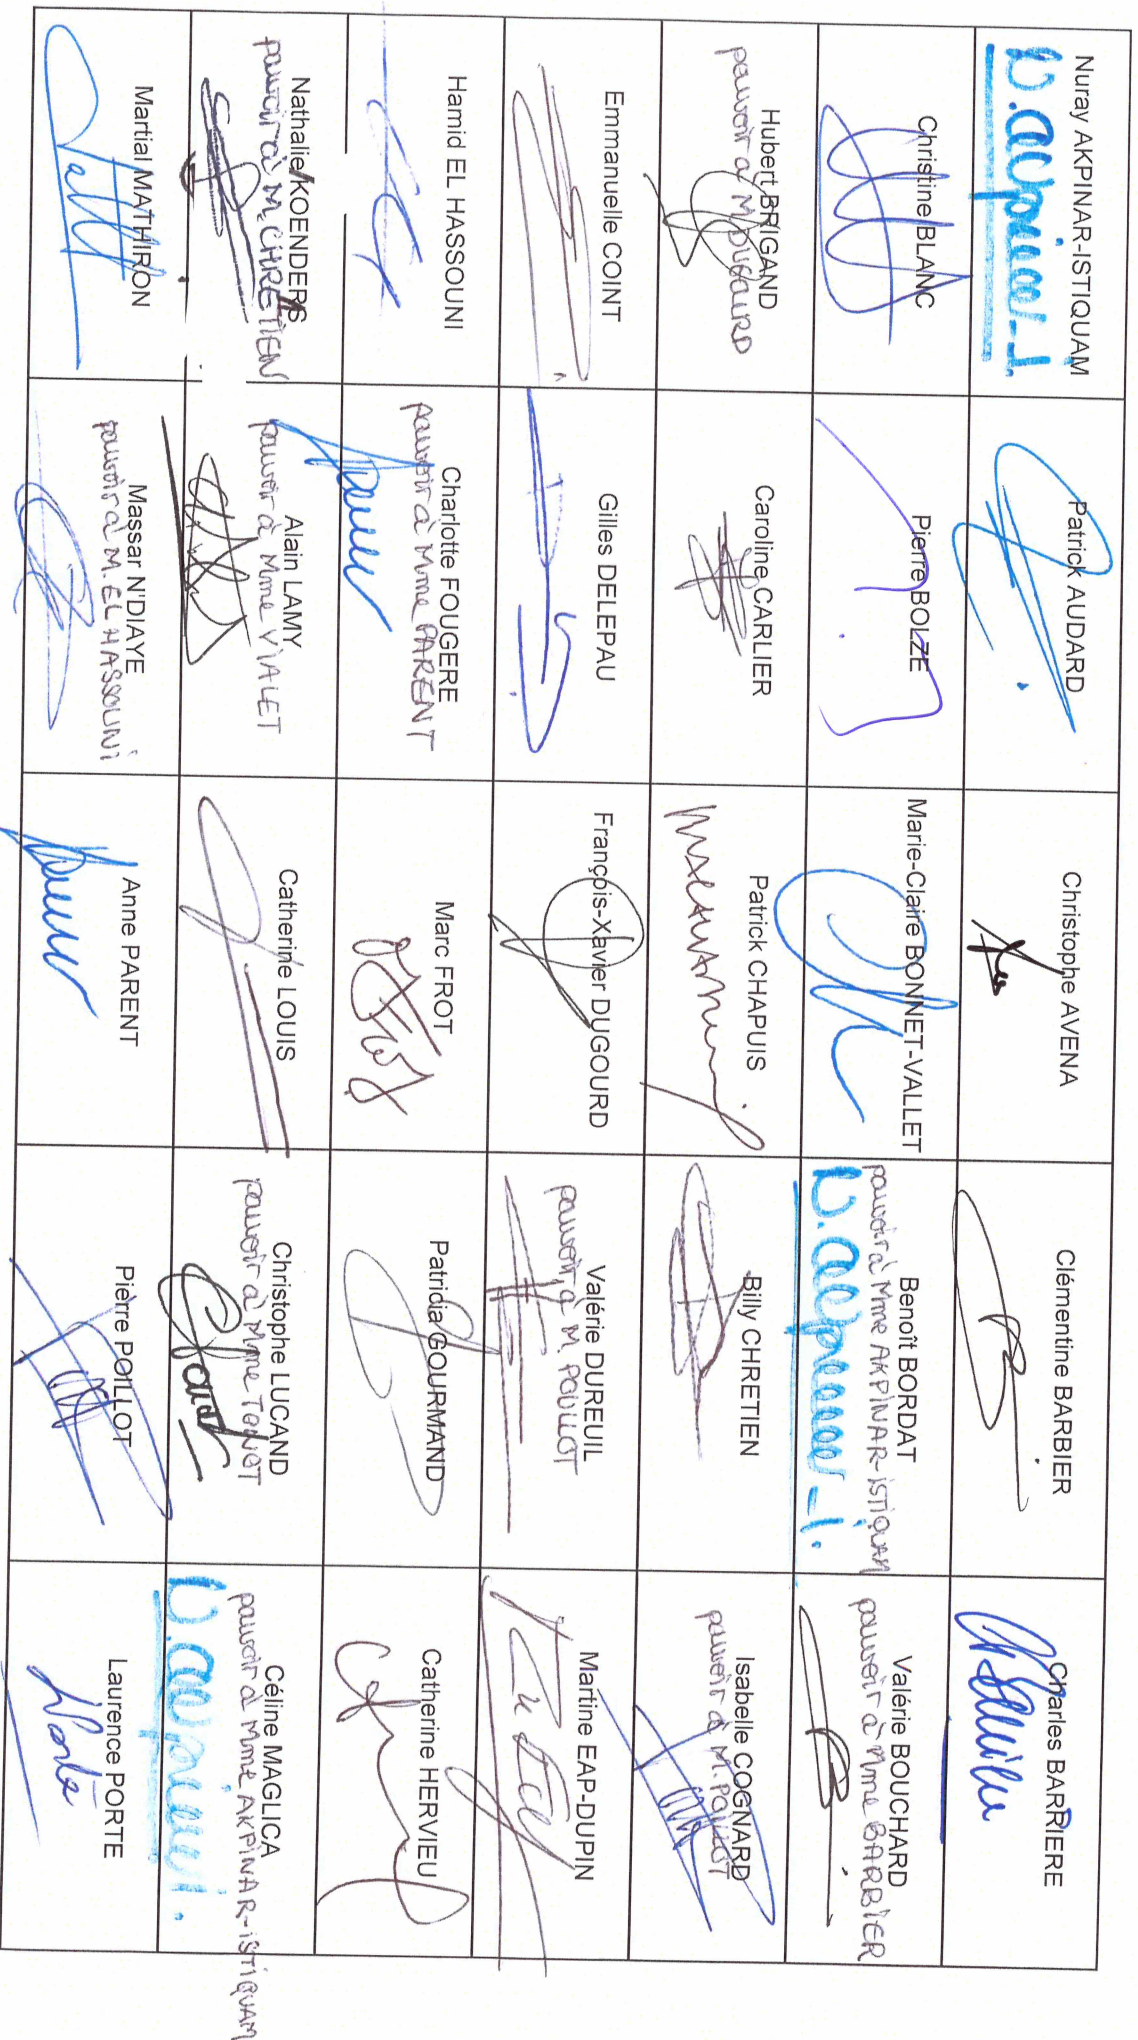 Nuray AKPINAR-ISTIQUAM
Patrick AUDARD
Christophe AVENA
Clémentine BARBIER
Charles BARRIERE
Christine BLANC
Pierre BOLZE
Marie-Claire BONNET-VALLET
Benoît BORDAT
pouvoir à Mme AKPINAR-ISTIQUAM
Valérie BOUCHARD
pouvoir à Mme BARBIER
Hubert BRIGAND
pouvoir à M DUGOURD
Caroline CARLIER
Patrick CHAPUIS
Billy CHRETIEN
Isabelle COGNARD
pouvoir à M. POILLOT
Emmanuelle COINT
Gilles DELEPAU
François-Xavier DUGOURD
Valérie DUREUIL
pouvoir à M. POILLOT
Martine EAP-DUPIN
Hamid EL HASSOUNI
Charlotte FOUGERE
pouvoir à Mme PARENT
Marc FROT
Patricia GOURMAND
Catherine HERVIEU
Nathalie KOENDERS
pouvoir à M. CHRETIEN
Alain LAMY
pouvoir à Mme VIALET
Catherine LOUIS
Christophe LUCAND
pouvoir à Mme TONOT
Céline MAGLICA
pouvoir à Mme AKPINAR-ISTIQUAM
Martial MATHIRON
Massar N'DIAYE
pouvoir à M. EL HASSOUNI
Anne PARENT
Pierre POILLOT
Laurence PORTE